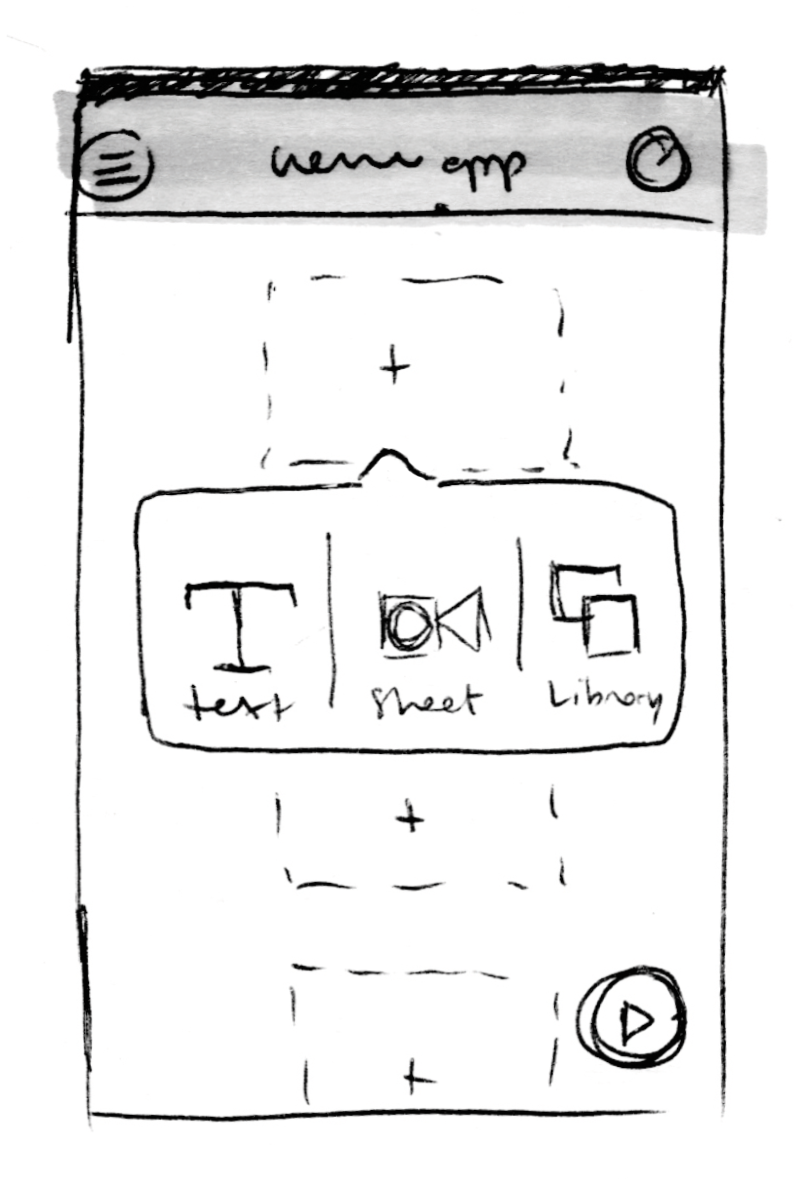 app
text sheet Library